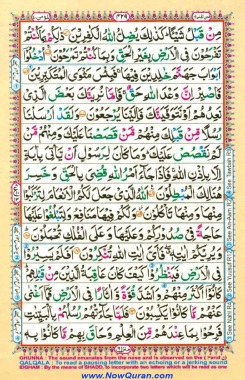 مِنْ قَبْلُ شَيْئًا ۚ كَذٰلِكَ يُضِلُّ اللّٰهُ الْكٰفِرِيْنَ ذٰلِكُمْ بِمَا كُنْتُمْ
تَفْرَحُوْنَ فِي الْاَرْضِ بِغَيْرِ الْحَقِّ وَبِمَا كُنْتُمْ تَمْرَحُوْنَ اُدْخُلُوْٓا
اَبْوَابَ جَهَنَّمَ خٰلِدِيْنَ فِيْهَا ۚ فَبِئْسَ مَثْوَى الْمُتَكَبِّرِيْنَ
فَاصْبِرْ اِنَّ وَعْدَ اللّٰهِ حَقٌّ ۚ فَاِمَّا نُرِيَنَّكَ بَعْضَ الَّذِيْ
نَعِدُهُمْ اَوْ نَتَوَفَّيَنَّكَ فَاِلَيْنَا يُرْجَعُوْنَ وَلَقَدْ اَرْسَلْنَا
رُسُلًا مِّنْ قَبْلِكَ مِنْهُمْ مَّنْ قَصَصْنَا عَلَيْكَ وَمِنْهُمْ مَّنْ
لَّمْ نَقْصُصْ عَلَيْكَ ۗ وَمَا كَانَ لِرَسُوْلٍ اَنْ يَّاْتِيَ بِاٰيَةٍ
اِلَّا بِاِذْنِ اللّٰهِ ۚ فَاِذَا جَآءَ اَمْرُ اللّٰهِ قُضِيَ بِالْحَقِّ وَخَسِرَ
هُنَالِكَ الْمُبْطِلُوْنَ اَللّٰهُ الَّذِيْ جَعَلَ لَكُمُ الْاَنْعَامَ لِتَرْكَبُوْا
مِنْهَا وَمِنْهَا تَاْكُلُوْنَ وَلَكُمْ فِيْهَا مَنَافِعُ وَلِتَبْلُغُوْا عَلَيْهَا
حَاجَةً فِيْ صُدُوْرِكُمْ وَعَلَيْهَا وَعَلَى الْفُلْكِ تُحْمَلُوْنَ
وَيُرِيْكُمْ اٰيٰتِهٖ ۖ فَاَيَّ اٰيٰتِ اللّٰهِ تُنْكِرُوْنَ اَفَلَمْ يَسِيْرُوْا
فِي الْاَرْضِ فَيَنْظُرُوْا كَيْفَ كَانَ عَاقِبَةُ الَّذِيْنَ مِنْ قَبْلِهِمْ
كَانُوْٓا اَكْثَرَ مِنْهُمْ وَاَشَدَّ قُوَّةً وَّاٰثَارًا فِي الْاَرْضِ فَمَآ اَغْنٰى
عَنْهُمْ مَّا كَانُوْا يَكْسِبُوْنَ فَلَمَّا جَآءَتْهُمْ رُسُلُهُمْ بِالْبَيِّنٰتِ
فَرِحُوْا بِمَا عِنْدَهُمْ مِّنَ الْعِلْمِ وَحَاقَ بِهِمْ مَّا كَانُوْا بِهٖ
GHUNNA : The sound emanates from the nose and is observed on the
QALQALA : To read a meaning letter with an echoing or a jerking sound
IDGHAM : By the means of SHADD, to incorporate two letters which will be read as one
www.NowQuran.com